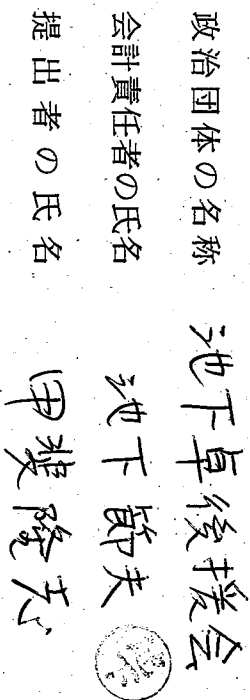 政治団体の名称 池下卓後援会
会計責任者の氏名 池下節夫
提出者の氏名 甲斐隆志